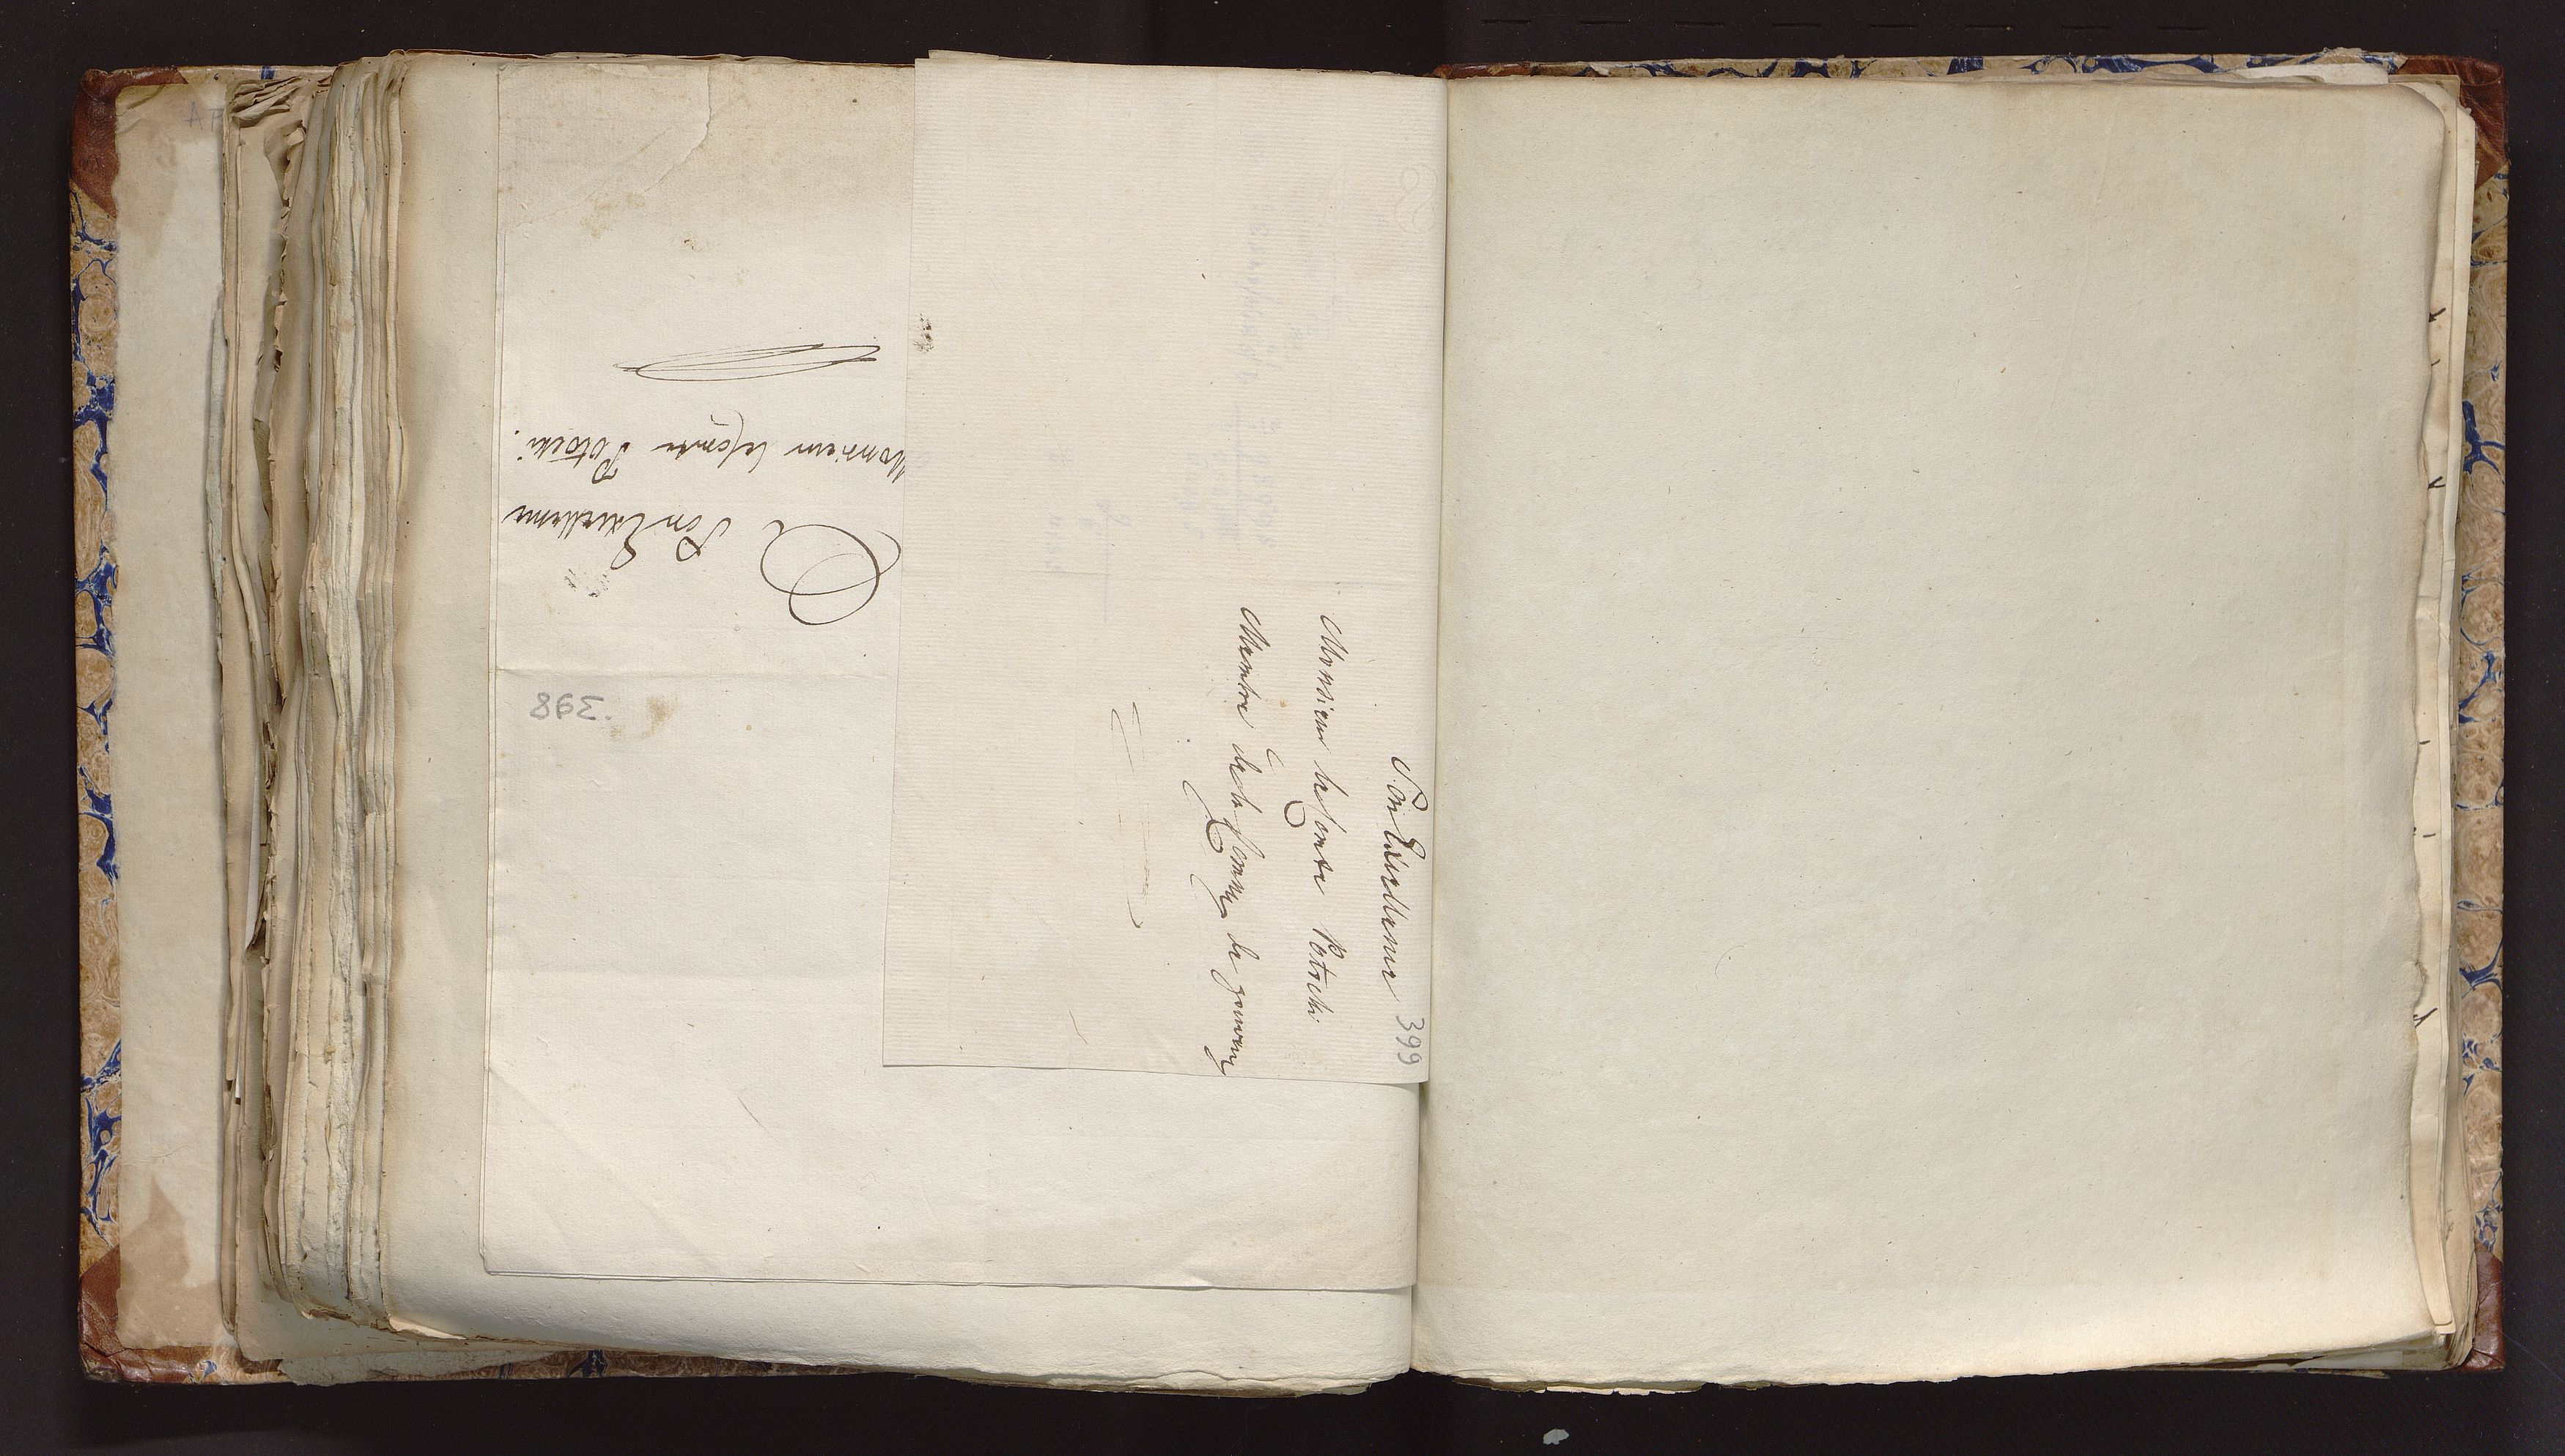 A Son Excellence
Monsieur le Comte Potocki.
398
399
Son Excellence
Monsieur le Comte Potocki
Membre de la Commⁿ de gouvernᵗ